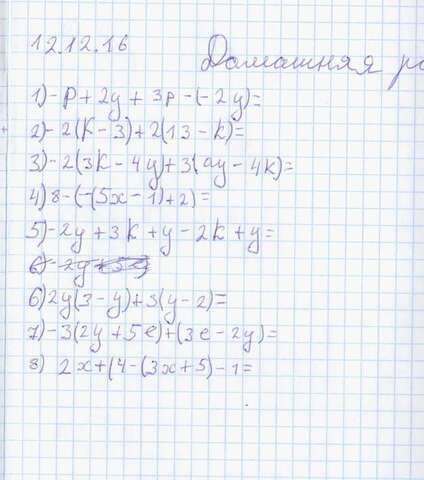 12.12.16
Домашняя ра
1) - p + 2y + 3p - (- 2y) =
2) - 2(k - 3) + 2(13 - k) =
3) - 2(3k - 4y) + 3(ay - 4k) =
4) 8 - (-(5x - 1) + 2) =
5) - 2y + 3k + y - 2k + y =
6) 2y(3 - y) + 3(y - 2) =
7) - 3(2y + 5e) + (3e - 2y) =
8) 2x + (4 - (3x + 5) - 1 =